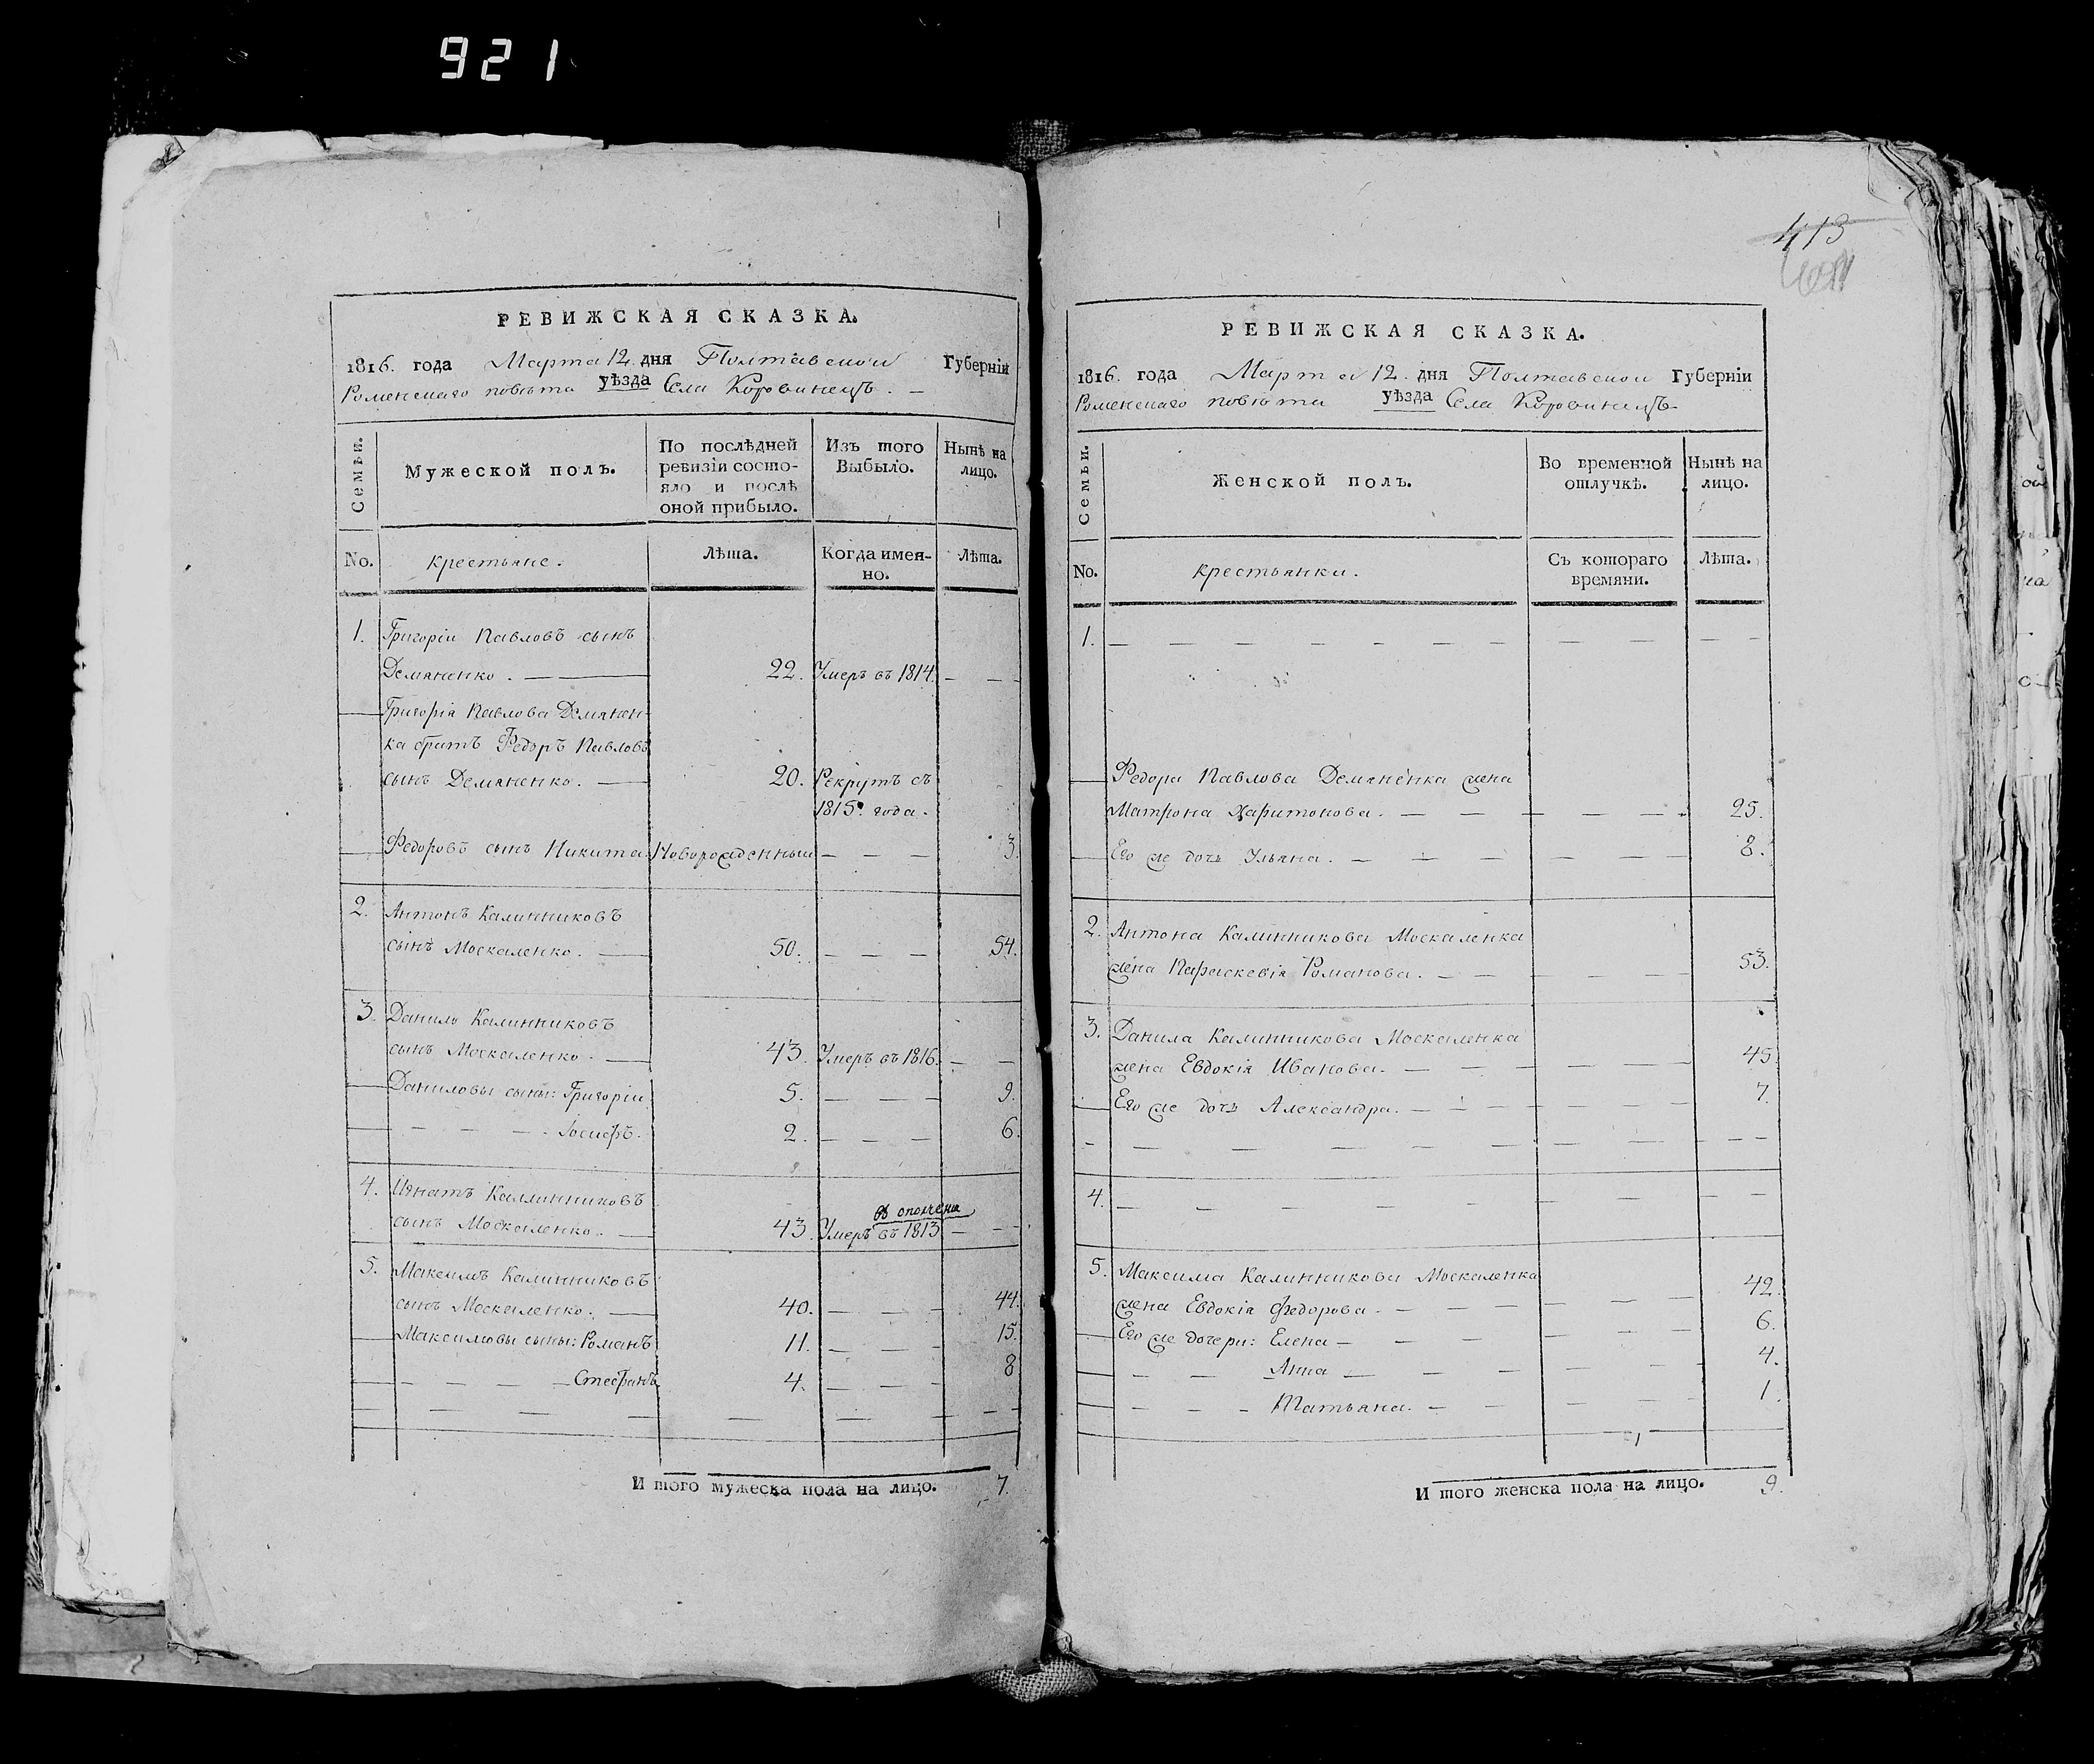 921
РЕВИЖСКАЯ СКАЗКА.
1816. года Марта 12. дня Полтавской Губернїи
Роменскаго повѣта уѣзда Села Коровинецъ. —
Семьи.
Мужеской полъ.
По послѣдней
ревизїи состо-
яло и послѣ
оной прибыло.
Изъ того
Выбыло.
Нынѣ на
лицо.
No.
крестьяне.
Лѣта.
Когда имен-
но.
Лѣта.
1. Григорїй Павловъ сынъ
Демяненко. — 22. Умеръ въ 1814. — —
Григорїя Павлова Демянен-
ка братъ Федоръ Павловъ
сынъ Демяненко. — 20. Рекрутъ съ
1815. года.
Федоровъ сынъ Никита. Новорожденный — — — 3.
2. Антонъ Калинниковъ
сынъ Москаленко. — 50. — — — 54.
3. Данило Калинниковъ
сынъ Москаленко. — 43. Умеръ въ 1816. — —
Даниловы сыны: Григорїй 5. — — — 9.
— — — Іосифъ. 2. — — — 6.
4. Игнатъ Калинниковъ
в ополчени
сынъ Москаленко. — 43. Умеръ въ 1813 — —
5. Максимъ Калинниковъ
сынъ Москаленко. — 40. — — — 44.
Максимовы сыны: Романъ 11. — — — 15.
— — — — Стефанъ 4. — — — 8
И того мужеска пола на лицо. 7.
413
РЕВИЖСКАЯ СКАЗКА.
1816. года Марта 12. дня Полтавской Губернїи
Роменскаго повѣта уѣзда Села Коровинецъ.
Семьи.
Женской полъ.
Во временной
отлучкѣ.
Нынѣ на
лицо.
No.
крестьянки.
Съ котораго
времяни.
Лѣта.
1. — — — — — — — — — — —
Федора Павлова Демяненка жена
Матрона Харитонова. — — — — — 25.
Его же дочь Ульяна. — — — — — 8.
2. Антона Калинникова Москаленка
жена Параскевїя Романова. — — — — 53.
3. Данила Калинникова Москаленка
жена Евдокїя Иванова. — — — — — 45.
Его же дочь Александра. — — — — — 7.
4. — — — — — — — — —
5. Максима Калинникова Москаленка
жена Евдокїя Федорова. — — — — — 42.
Его же дочери: Елена — — — — — 6.
— — Анна — — — — — 4.
— — — Татьяна. — — — — — 1.
И того женска пола на лицо. 9.